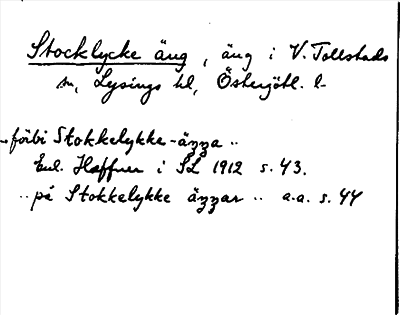 Stocklycke äng, äng i V. Tollstads
sn, Lysings hd, Östergötl. l.
.. förbi Stokkelykke-ängga ..
Enl. Haffner i SL 1912 s. 43.
.. på Stokkelykke änggar .. a.a. s. 44